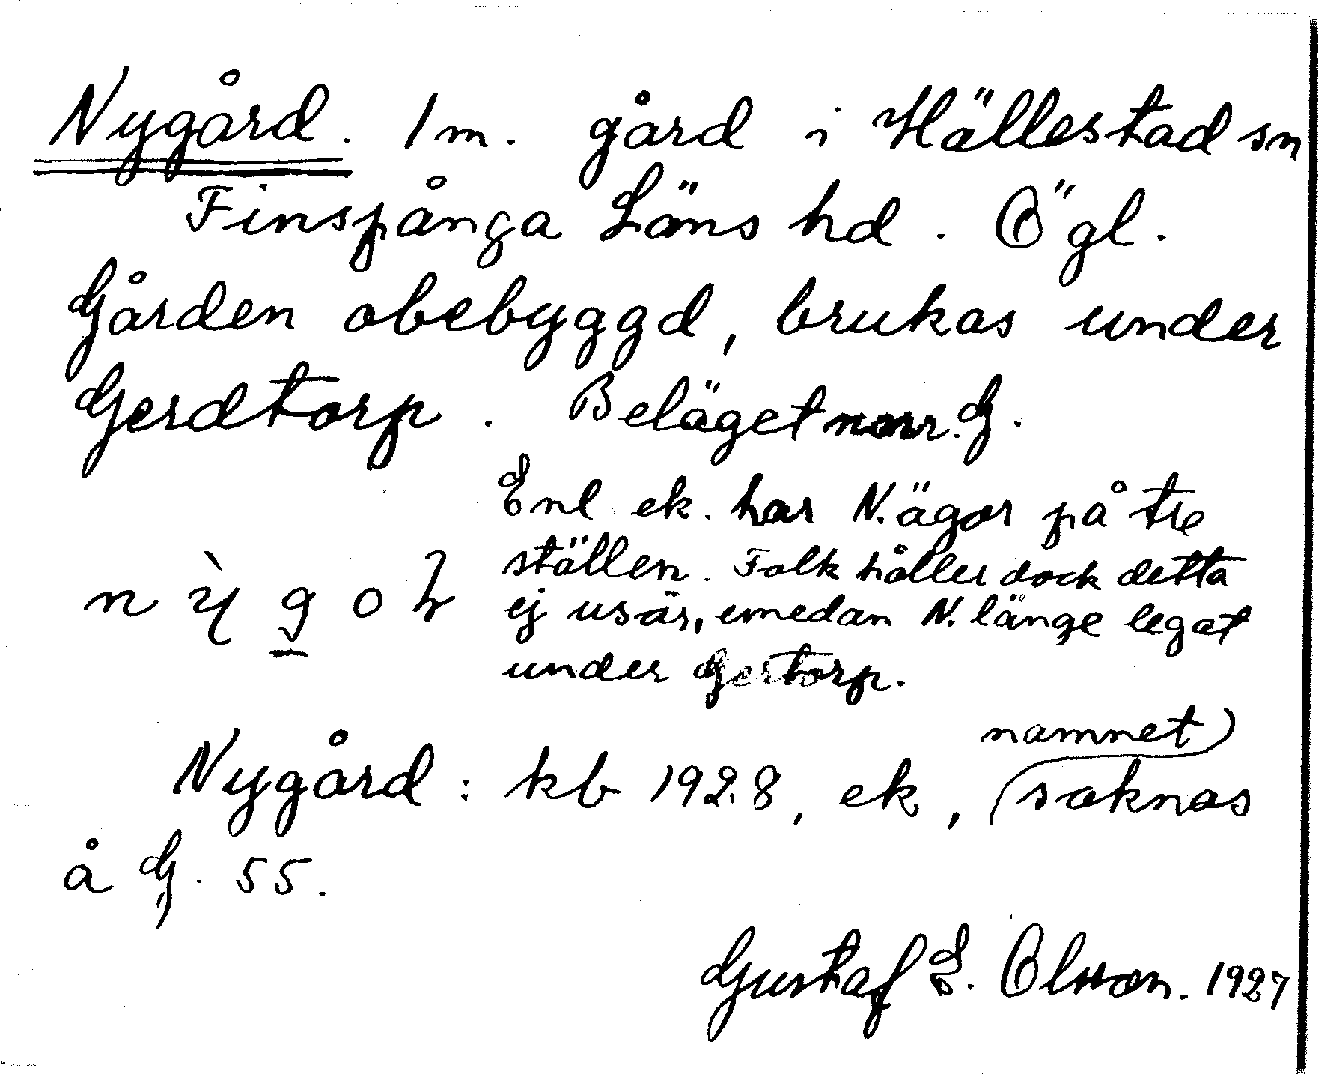 Nygård. 1 m. gård i Hällestad sn
Finspånga Läns hd. Ögl.
Gården obebyggd, brukas under
Gerdtorp. Beläget norr. G.
Enl ek. har N. ägor på tre
ställen. Folk håller dock detta
ej isär, emedan N. länge legat
under Gertorp.
Nygård: kb 1928, ek, (namnet) saknas
å G. 55.
Gustaf E. Olsson. 1927